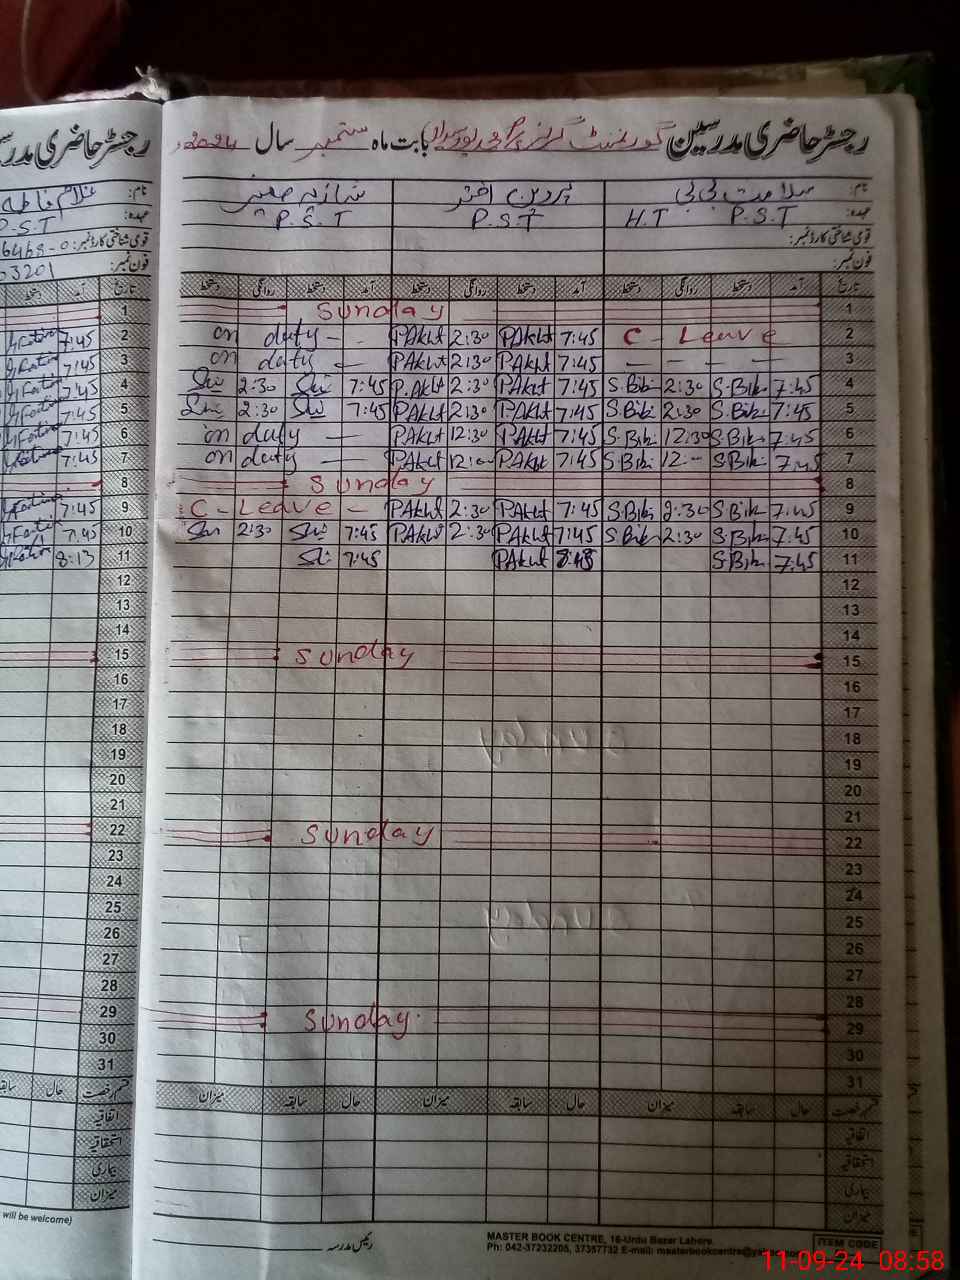 رجسٹر حاضری مدرسین گورنمنٹ گرلز پرائمری بابت ماہ ستمبر سال 2024
نام: سلامت بی بی پروین اختر شازیہ صفیر
عہدہ: P.S.T H.T P.S.T P.S.T
قومی شناختی کارڈ نمبر:
فون نمبر:
تاریخ آمد دستخط روانگی دستخط آمد دستخط روانگی دستخط آمد دستخط روانگی دستخط
1 Sunday
on duty - - PAkht 2:30 PAkht 7:45 C - Leave 2
on duty - PAkht 2:30 PAkht 7:45 — — — 3
Shi 2:30 Shi 7:45 P.Akht 2:30 PAkht 7:45 S.Bibi 2:30 S.Bibi 7:45 4
Shi 2:30 Shi 7:45 PAkht 2:30 P.Akht 7:45 S.Bibi 2:30 S.Bibi 7:45 5
on duty — PAkht 12:30 PAkht 7:45 S.Bibi 12:30 S.Bibi 7:45 6
on duty — PAkht 12:00 PAkht 7:45 S.Bibi 12:- S.Bibi 7:45 7
Sunday 8
C - Leave - PAkht 2:30 PAkht 7:45 S.Bibi 2:30 S.Bibi 7:45 9
Shi 2:30 Shi 7:45 PAkht 2:30 PAkht 7:45 S.Bibi 2:30 S.Bibi 7:45 10
Shi 7:45 PAkht S.Bibi 7:45 11
12
13
14
Sunday 15
16
17
18
19
20
21
Sunday 22
23
24
25
26
27
28
Sunday 29
30
31
قسم رخصت حال سابقہ میزان حال سابقہ میزان حال سابقہ میزان
اتفاقیہ
استحقاقیہ
بیماری
میزان
رئیس مدرسہ
MASTER BOOK CENTRE, 16-Urdu Bazar Lahore.
Ph: 042-37232205, 37357732 E-mail: masterbookcentre@
ITEM CODE
رجسٹر حاضری
نام: غلام فاطمہ
عہدہ: P.S.T
قومی شناختی کارڈ نمبر: 6468-0
فون نمبر: 03201
تاریخ آمد دستخط
1
7:45 2
7:45 3
7:45 4
7:45 5
7:45 6
7:45 7
8
7:45 9
7:45 10
8:13 11
12
13
14
15
16
17
18
19
20
21
22
23
24
25
26
27
28
29
30
31
قسم رخصت حال سابقہ
اتفاقیہ
استحقاقیہ
بیماری
میزان
will be welcome)
11-09-24 08:58